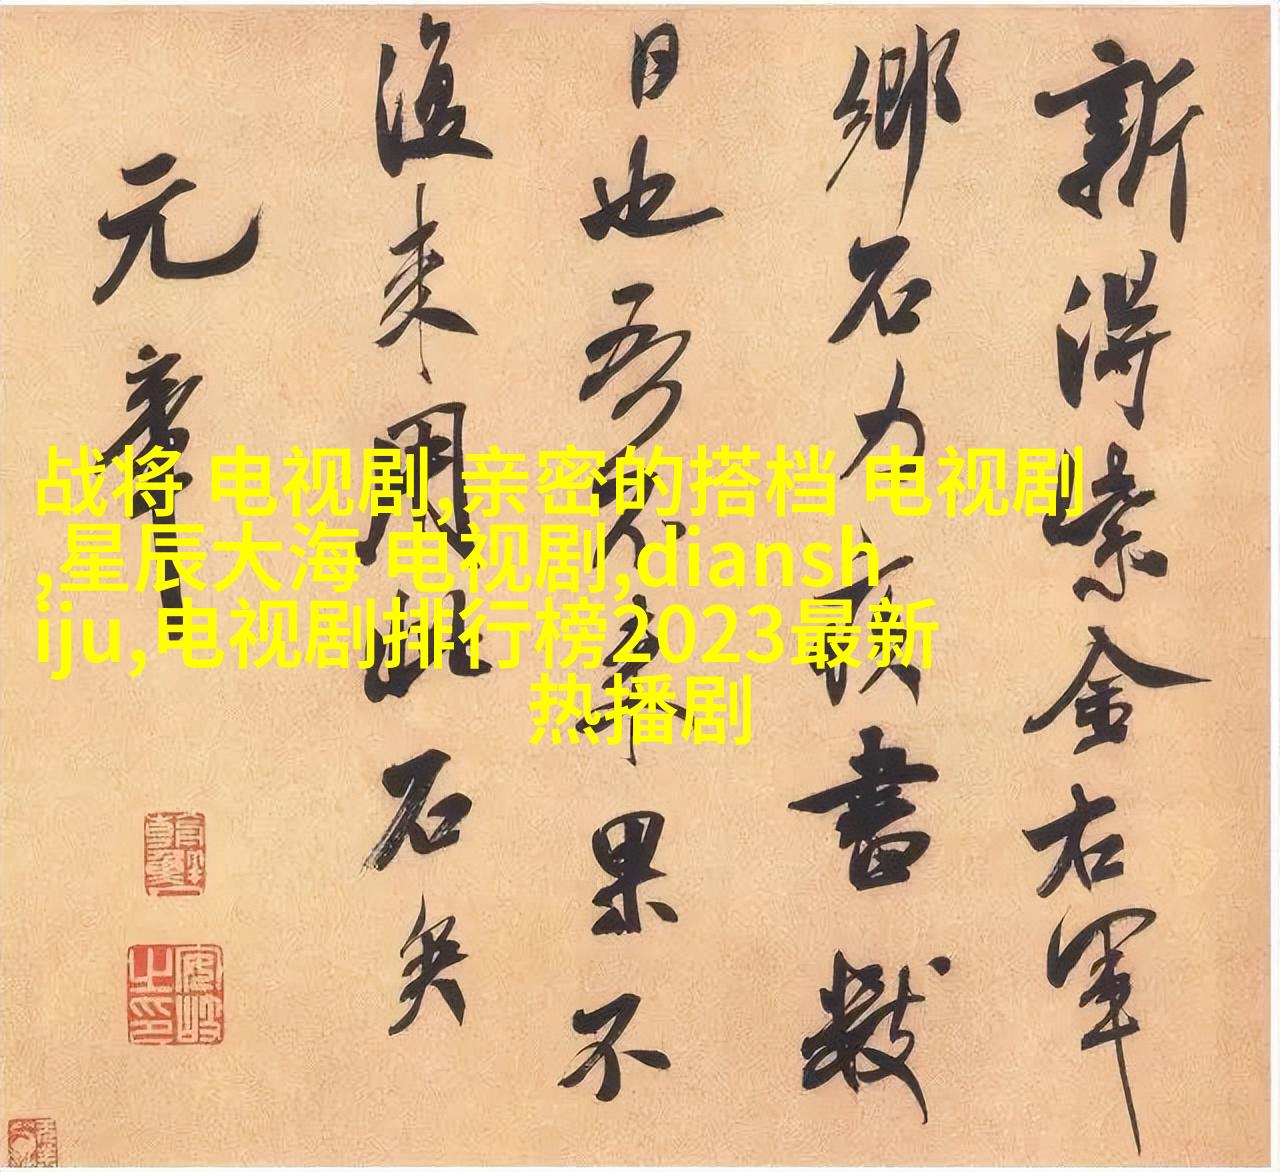 新得紫金右軍
鄉石力疾書數
日也吾兄果不
復来用此石矣
元章
战将 电视剧,亲密的搭档 电视剧
,星辰大海 电视剧,diansh
iju,电视剧排行榜2023最新
热播剧